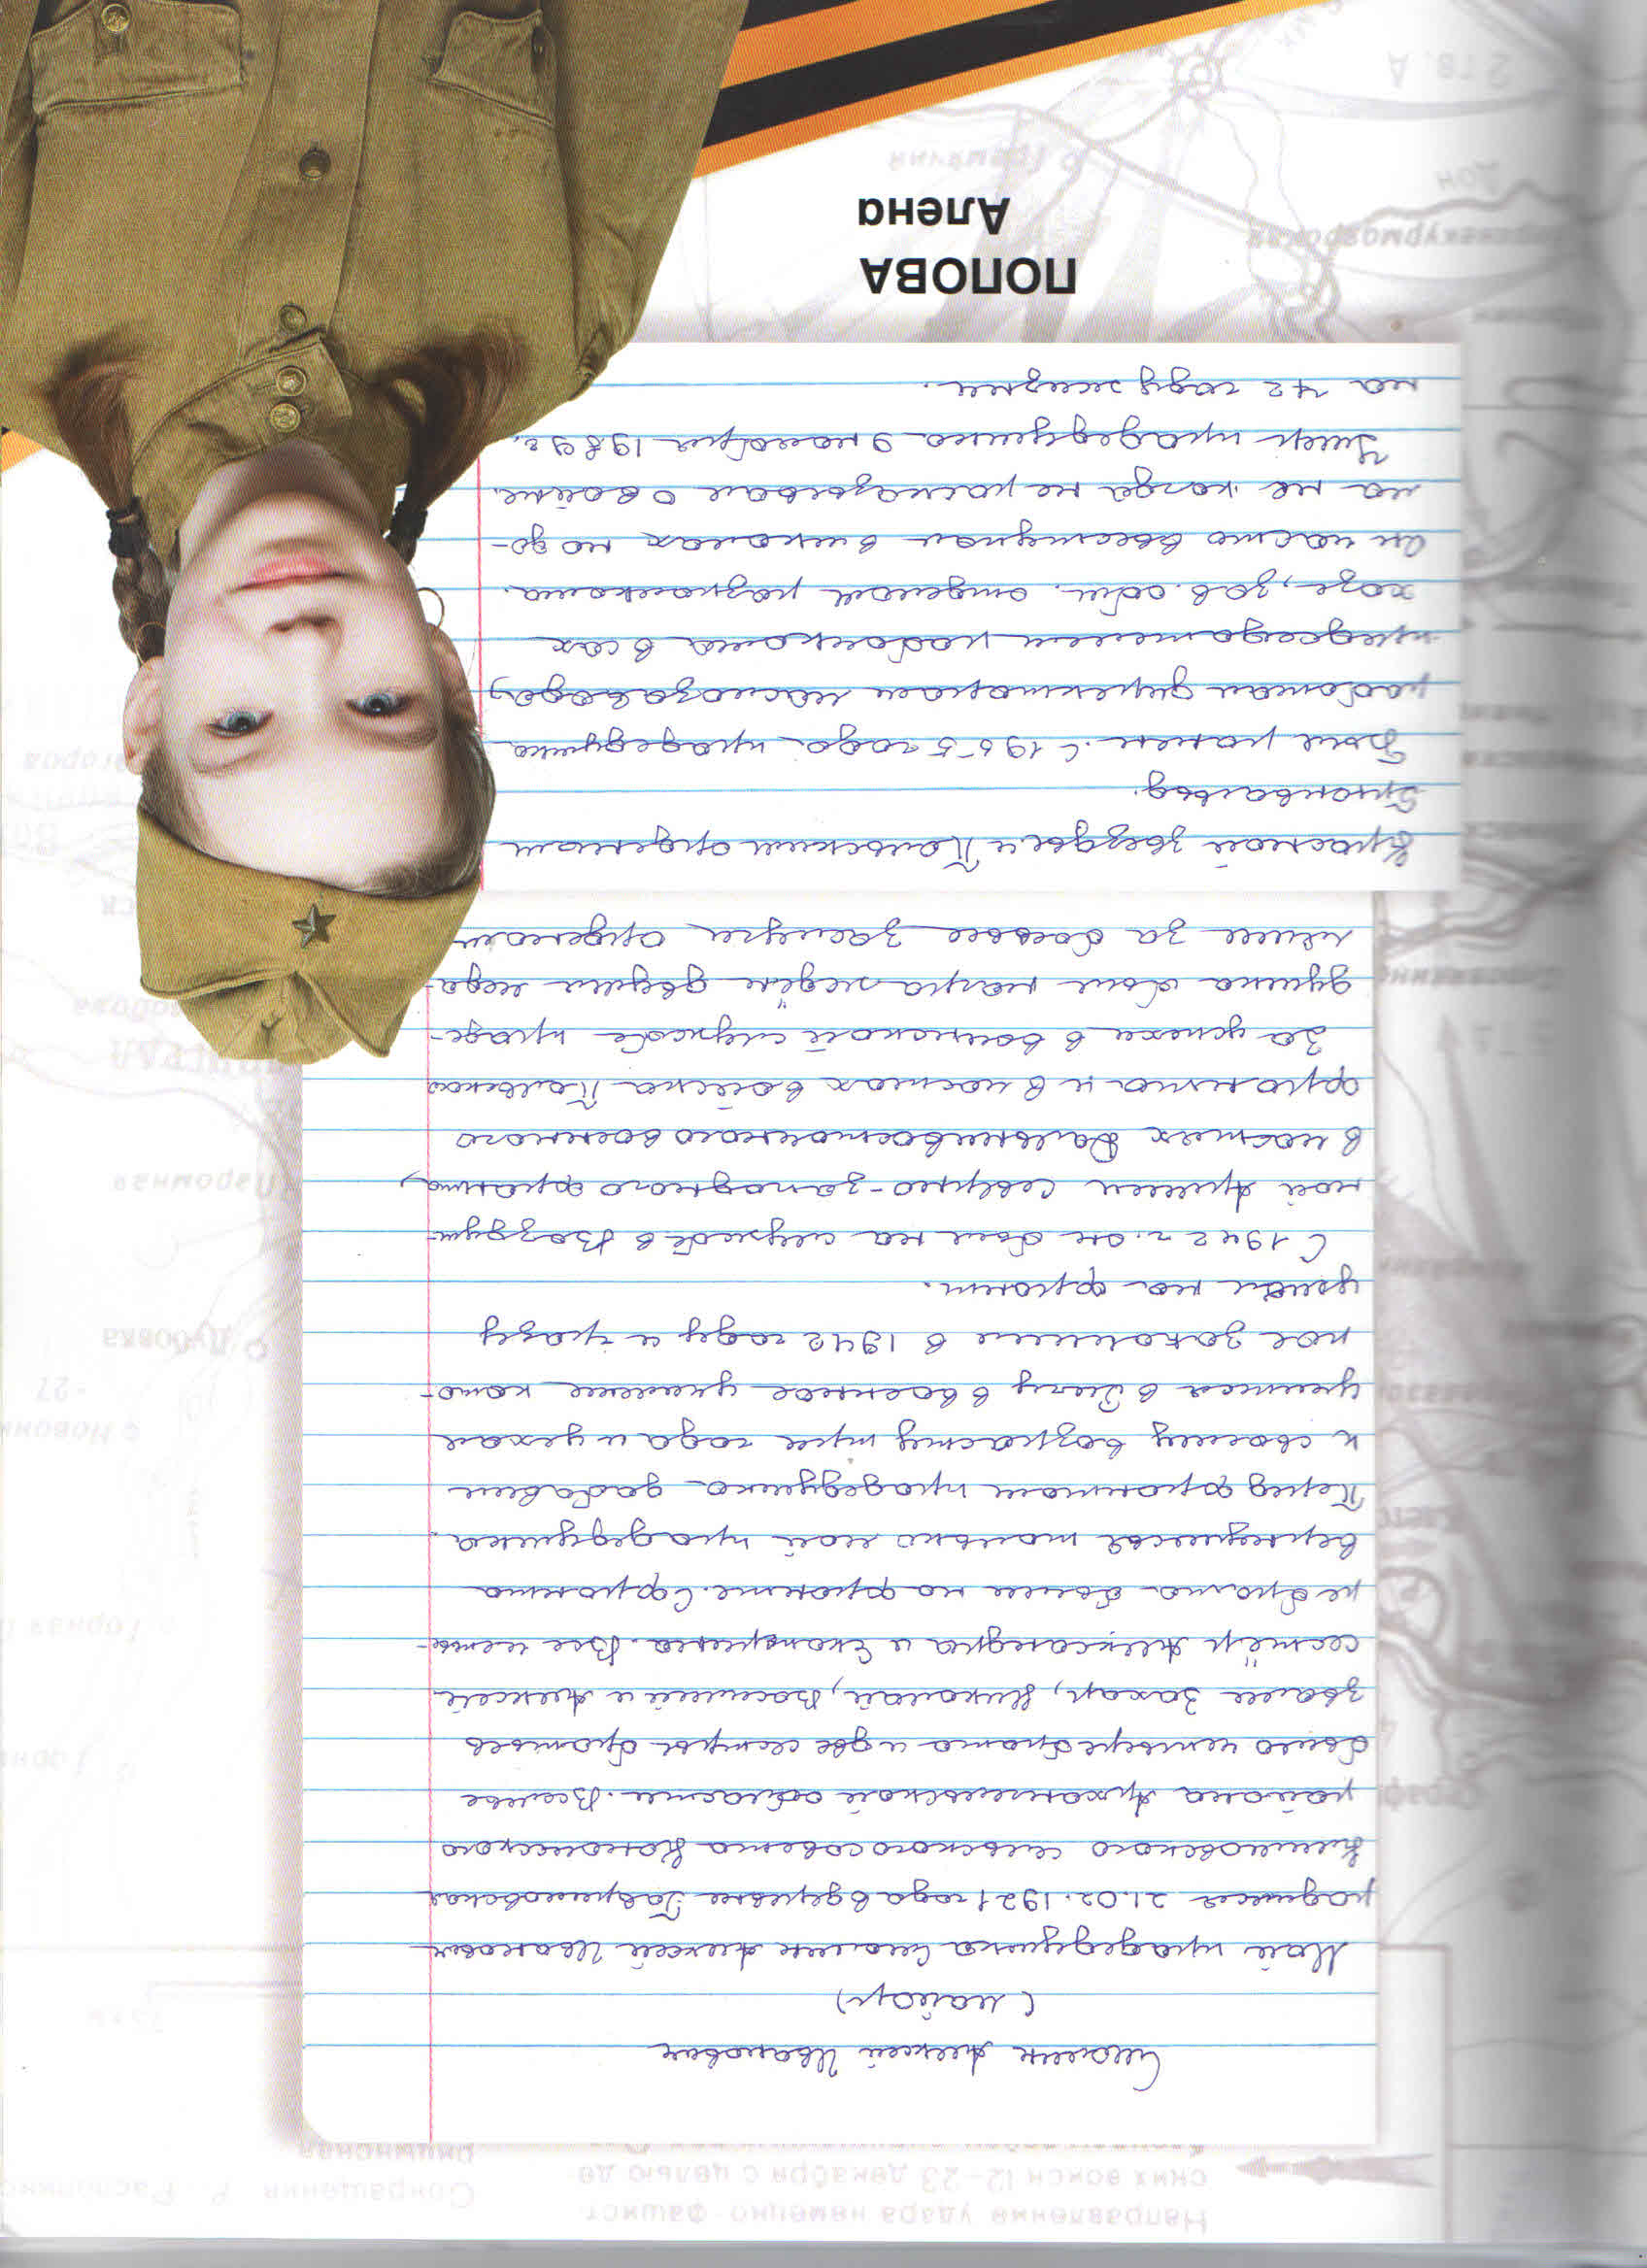 Направление удара немецко-фашист-
ских войск 12–23 декабря с целью де-
Сокращения
Смолин Алексей Иванович
(майор)
Мой прадедушка Смолин Алексей Иванович
родился 21.02.1921 года в деревне Гавриловская
Климовского сельского совета Коношского
района Архангельской области. В семье
было четыре брата и две сестры братьев
звали Захар, Николай, Василий и Алексей
сестёр Александра и Екатерина. Все четы-
ре брата были на фронте. С фронта
вернулься только мой прадедушка.
Перед фронтом прадедушка добавил
к своему возрасту три года и уехал
учится в Ригу в военное училеще кото-
рое закончил в 1942 году и сразу
ушёл на фронт.
С 1942 г. он был на службе в Воздуш-
ной Армии северно-западного фронта,
в частях Дальнивосточного военного
фронта и в частях войска Польского
За успехи в воинской службе праде-
душка был награждён двумя меда-
лями за боевые заслуги орденом
Красной звезды и Польским орденом
Грюнвальд.
Был ранен. С 1955 года прадедушка
работал директором маслозавода,
председателем рабочкома в сов
хозе, зав. общ. отделом
Он часто выступал в школах но до-
ма не когда не расказывал о войне.
Умер прадедушка 9 ноября 1989 г.
на 72 году жизни.
ПОПОВА
Алена
Горная
27
Дубовка
Дон
Гремячий
2 гв. А